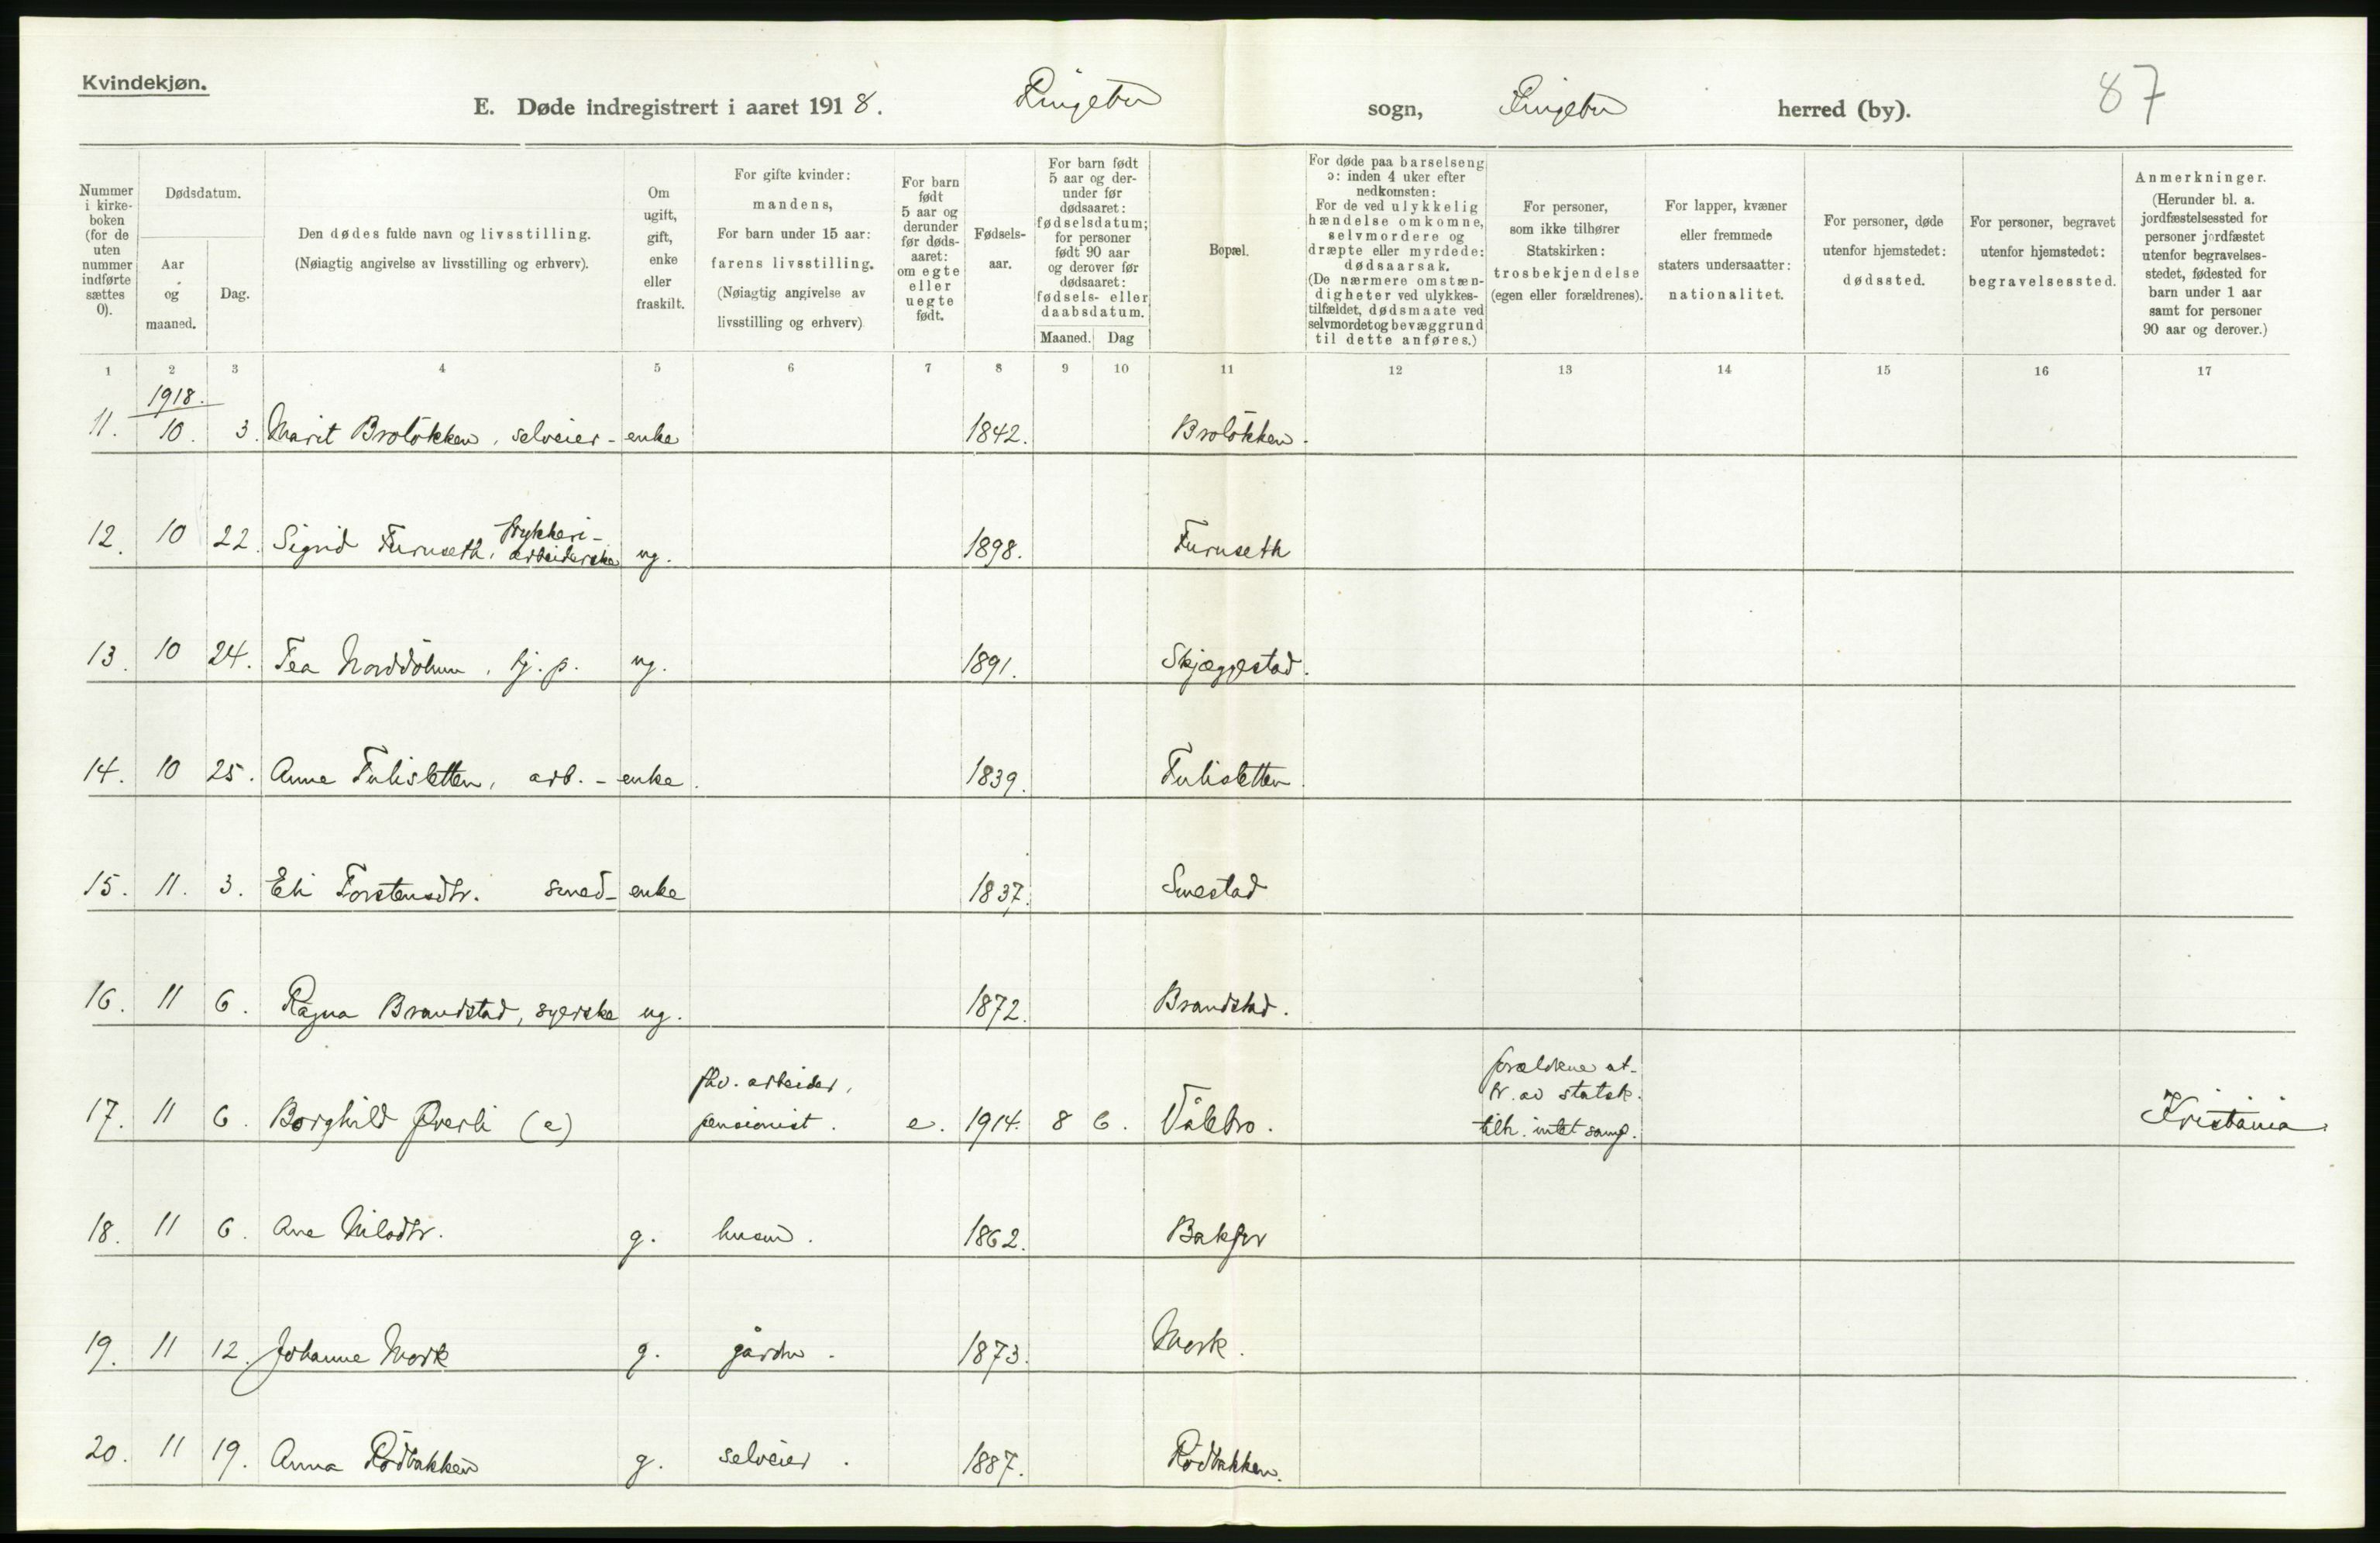 Kvindekjøn.
E. Døde indregistrert i aaret 1918. Ringebu sogn, Ringebu herred (by). 87
Nummer i kirke-boken (for de uten nummer indførte sættes 0).
Dødsdatum.
Aar og maaned.
Dag.
Den dødes fulde navn og livsstilling.
(Nøiagtig angivelse av livsstilling og erhverv).
Om ugift, gift, enke eller fraskilt.
For gifte kvinder:
mandens,
For barn under 15 aar:
farens livsstilling.
(Nøiagtig angivelse av
livsstilling og erhverv)
For barn født 5 aar og derunder før døds-aaret: om egte eller uegte født.
Fødsels-aar.
For barn født 5 aar og der-under før dødsaaret: fødselsdatum; for personer født 90 aar og derover før dødsaaret: fødsels- eller daabsdatum.
Maaned. Dag
Bopæl.
For døde paa barselseng
ɔ: inden 4 uker efter
nedkomsten:
For de ved ulykkelig
hændelse omkomne,
selvmordere og
dræpte eller myrdede:
dødsaarsak.
(De nærmere omstæn-
digheter ved ulykkes-
tilfældet, dødsmaate ved
selvmordet og bevæggrund
til dette anføres.)
For personer,
som ikke tilhører
Statskirken:
trosbekjendelse
(egen eller forældrenes).
For lapper, kvæner
eller fremmede
staters undersaatter:
nationalitet.
For personer, døde
utenfor hjemstedet:
dødssted.
For personer, begravet
utenfor hjemstedet:
begravelsessted.
Anmerkninger.
(Herunder bl. a.
jordfæstelsessted for
personer jordfæstet
utenfor begravelses-
stedet, fødested for
barn under 1 aar
samt for personer
90 aar og derover.)
1 2 3 4 5 6 7 8 9 10 11 12 13 14 15 16 17
1918.
11. 10. 3. Marit Brolökken, selveier- enke 1842. Brolökken.
12. 10 22. Sigrid Furuseth, trykkeri-
arbeiderske ug. 1898. Furuseth
13. 10 24. Tea Norddölum, tj. p. ug. 1891. Skjæggestad.
14. 10 25. Anne Fulisletten, arb. - enke. 1839. Fulisletten.
15. 11. 3. Eli Torstensdtr. smed- enke 1837. Smestad
16. 11 6. Ragna Brandstad, syerske ug. 1872. Brandstad.
17. 11 6. Borghild Øverli (e) fhv. arbeider,
pensionist. e. 1914. 8 6. Vålebro. forældrene ut-
tr. av statsk.
tilh. intet samf. Kristiania.
18. 11 6. Ane Nilsdtr. g. husm. 1862. Bakfor
19. 11 12. Johanne Mork g. gårdbr. 1873. Mork.
20. 11 19. Anna Rödbakken g. selveier. 1887. Rödbakken.